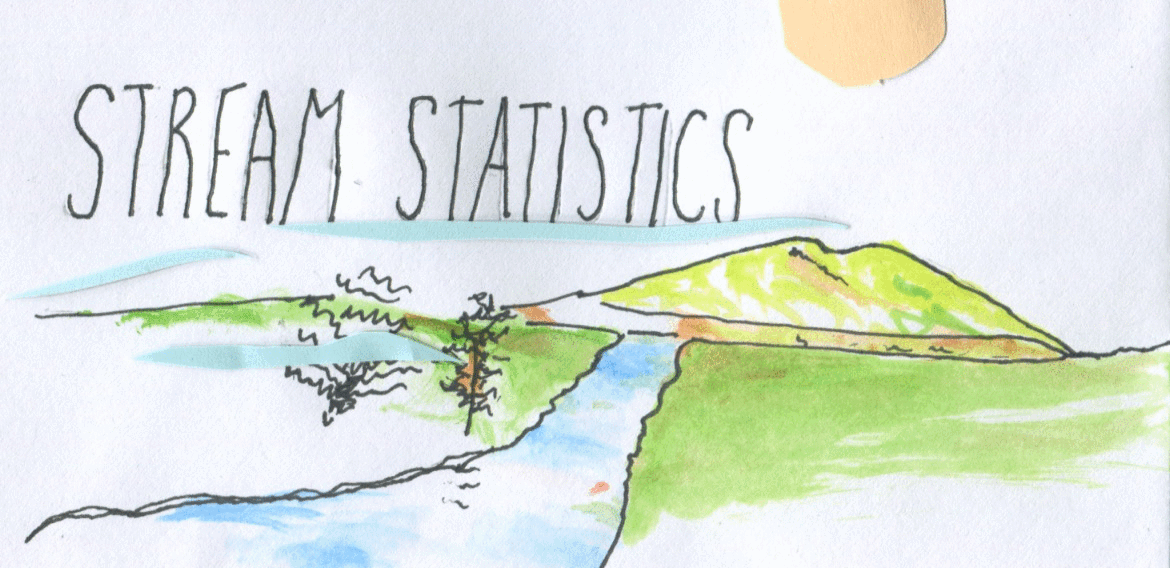 STREAM STATISTICS